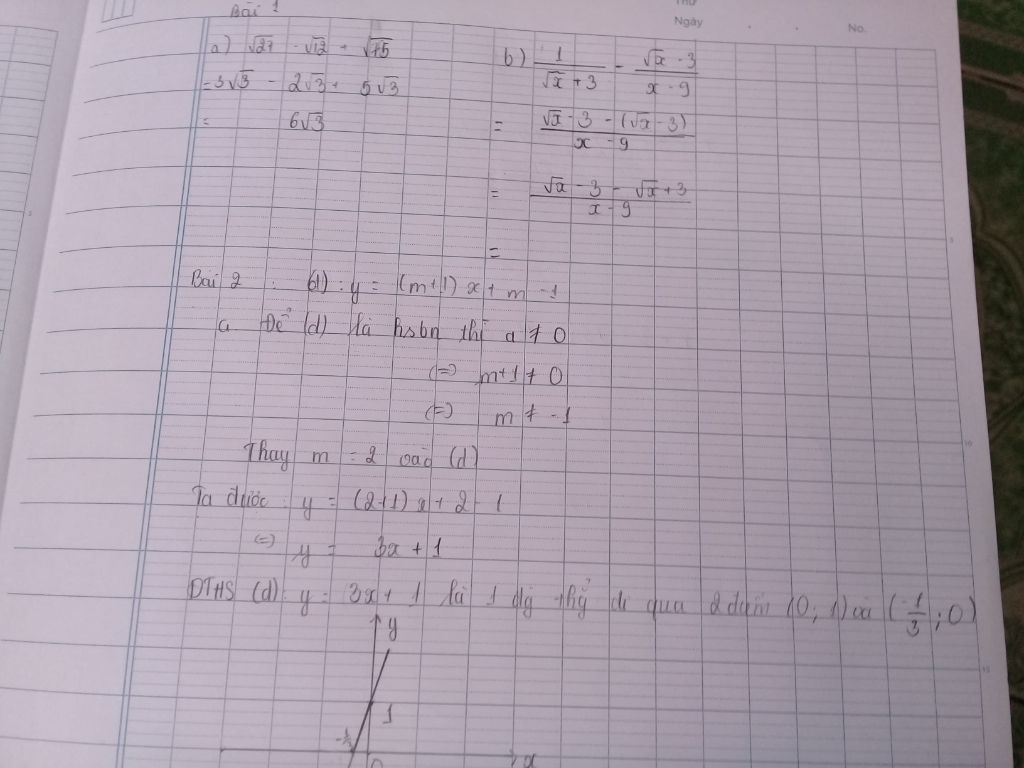 Thứ
Ngày
No.
Bài 1
a) √27 - √12 + √75
= 3√3 - 2√3 + 5√3
= 6√3
b) 1/(√x + 3) - (√x - 3)/(x - 9)
= (√x - 3 - (√x - 3))/(x - 9)
= (√x - 3 - √x + 3)/(x - 9)
=
Bài 2 : (d) : y = (m+1) x + m - 1
a Để (d) là hsbn thì a ≠ 0
(=) m+1 ≠ 0
(=) m ≠ -1
Thay m = 2 vào (d)
Ta được : y = (2+1) x + 2 - 1
(=) y = 3x + 1
ĐTHS (d) : y = 3x + 1 là 1 đg thg đi qua 2 điểm (0; 1) và (-1/3 ; 0)
y
1
-1/3
0
x